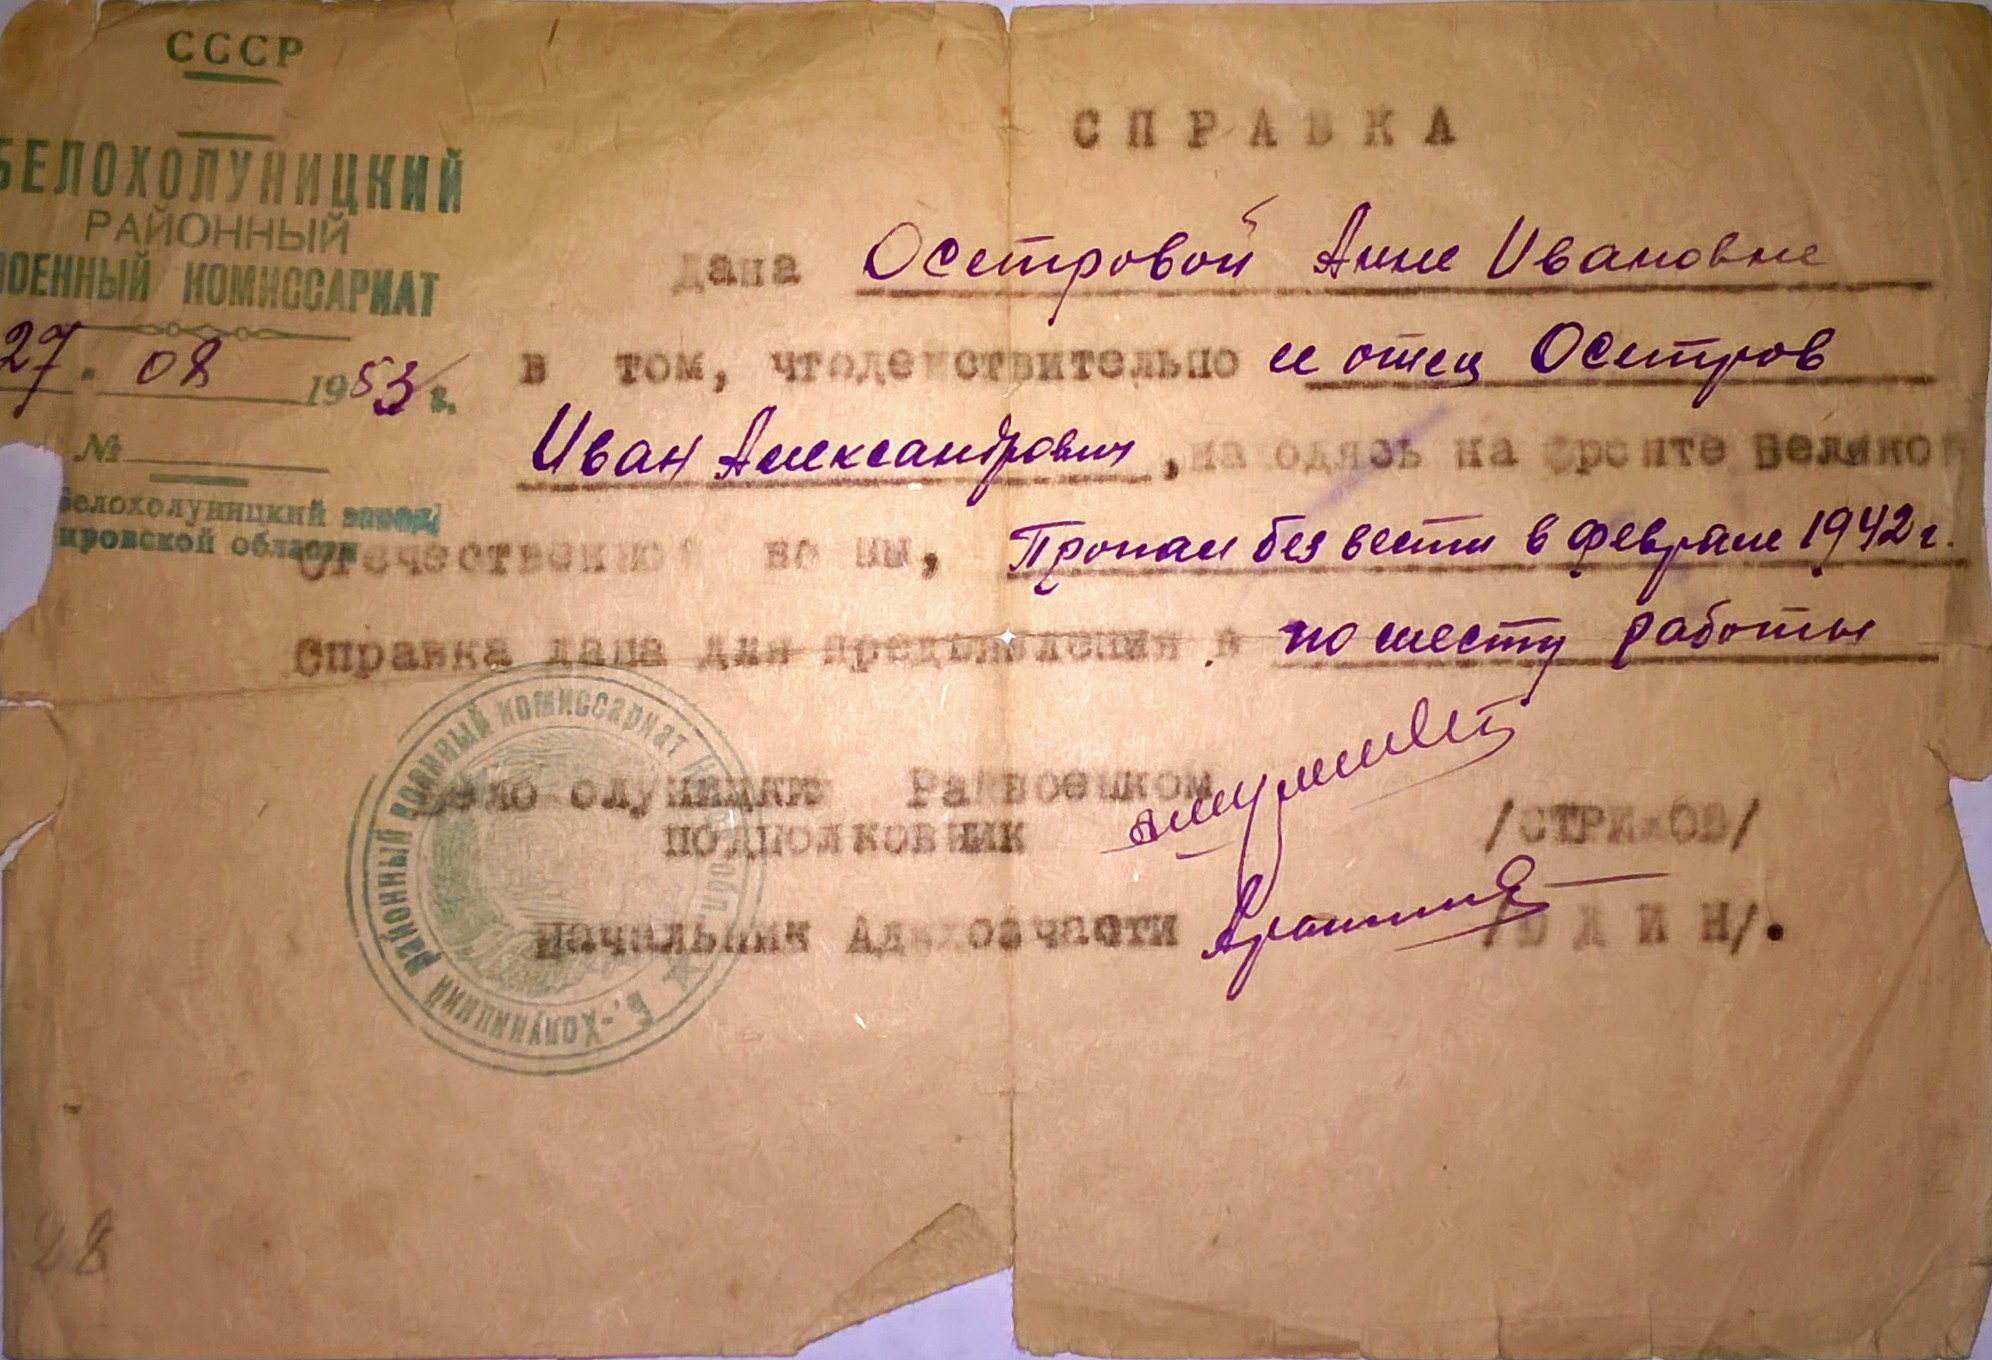 СССР
БЕЛОХОЛУНИЦКИЙ
РАЙОННЫЙ
ВОЕННЫЙ КОМИССАРИАТ
27 " 08 1953 г.
№
Белохолуницкий завод,
Кировской области
СПРАВКА
дана Осетровой Анне Ивановне
в том, чтодействительно ее отец Осетров
Иван Александрович, находясь на фронте Великой
Отечественной войны, Пропал без вести в феврале 1942 г.
Справка дана для предъявления в по месту работы
Белохолуницкий Райвоенком
подполковник /СТРИЖОВ/
Начальник Адмхозчасти /ЮДИН/.
Б.-Холуницкий районный военный комиссариат обл.
28